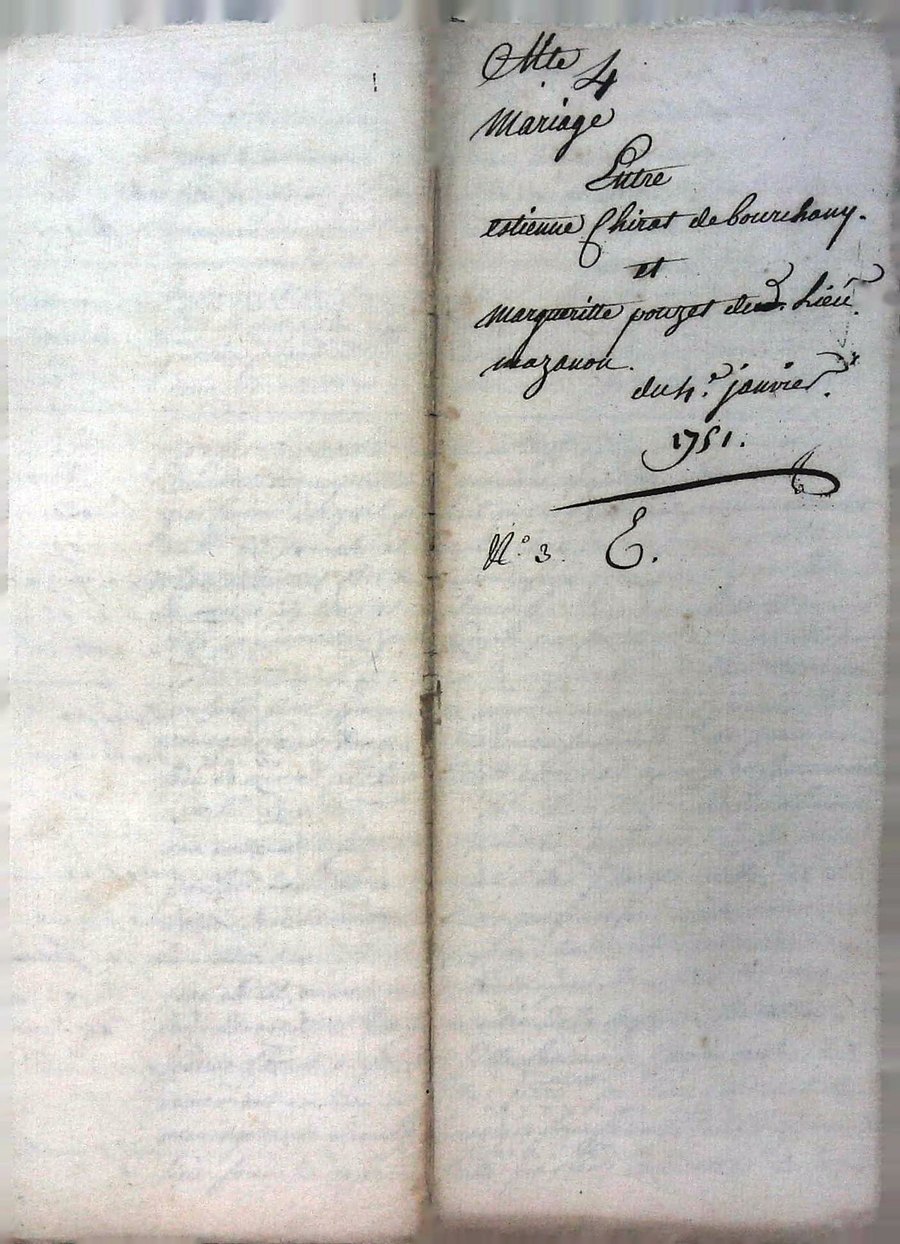 Cotte 4
Mariage
Entre
estienne Chirat de bourchany.
et
Margueritte pouzet du Lieu
mazanon.
du 4.e janvier.
1751.
N.o 3. E.